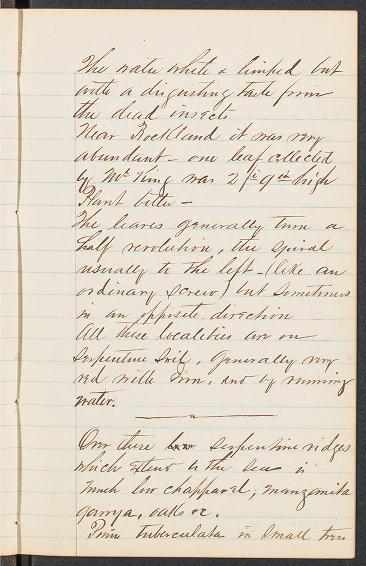 The water white & limpid but
with a disgusting taste from
the dead insects
Near Rockland it was very
abundant - one leaf collected
by Mr. King was 2 ft 9 in high
Plant bitter -
The leaves generally turn a
half revolution, the spiral
usually to the left - (like an
ordinary screw) but sometimes
in an opposite direction
All these localities are on
Serpentine soil, generally very
red with iron, and by running
water.
Over these serpentine ridges
which extend to the sea is
much low chapparel, manzanita
garrya, oaks &c.
Pinus tuberculata in small trees